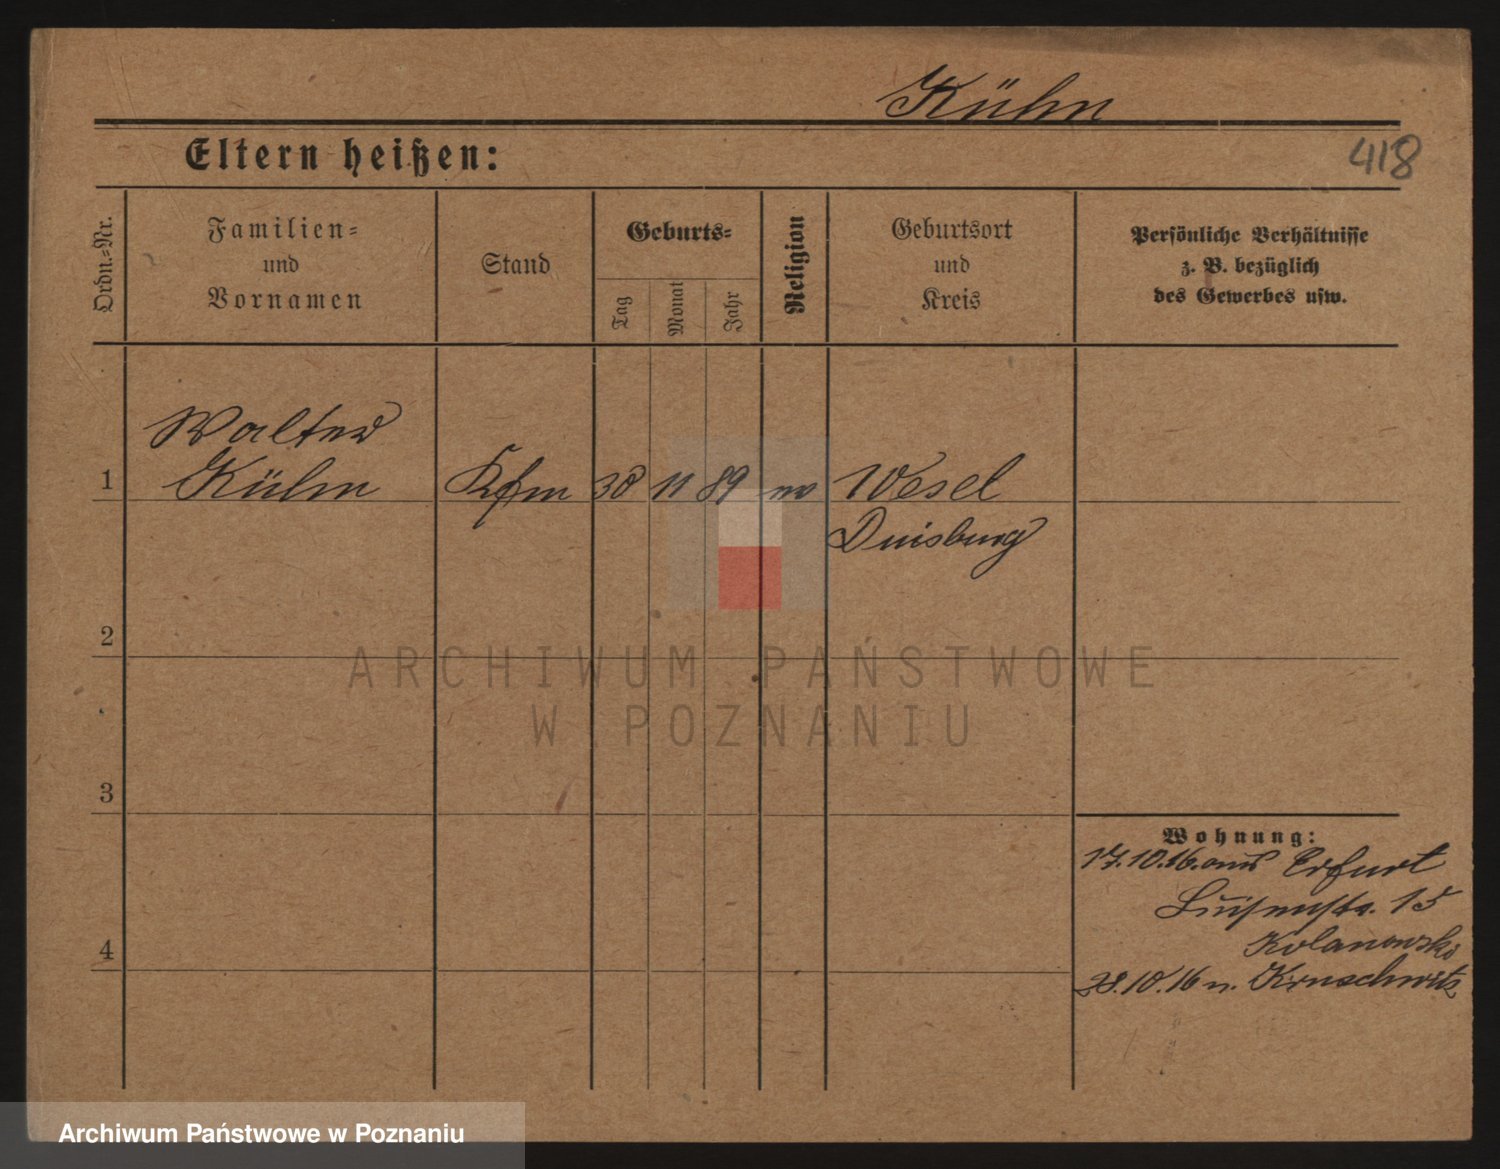 Kühn
Eltern heißen:
418
Ordn.-Nr.
Familien-
und
Vornamen
Stand
Geburts-
Tag
Monat
Jahr
Religion
Geburtsort
und
Kreis
Persönliche Verhältnisse
z. B. bezüglich
des Gewerbes usw.
Walter
1 Kühn Kfm 30 11 89 Wesel
Duisburg
2
ARCHIWUM PAŃSTWOWE
W POZNANIU
3
Wohnung:
17.10.16. aus Erfurt
Luisenstr. 15
Kolanowski
4
28.10.16 n. Kruschwitz
Archiwum Państwowe w Poznaniu